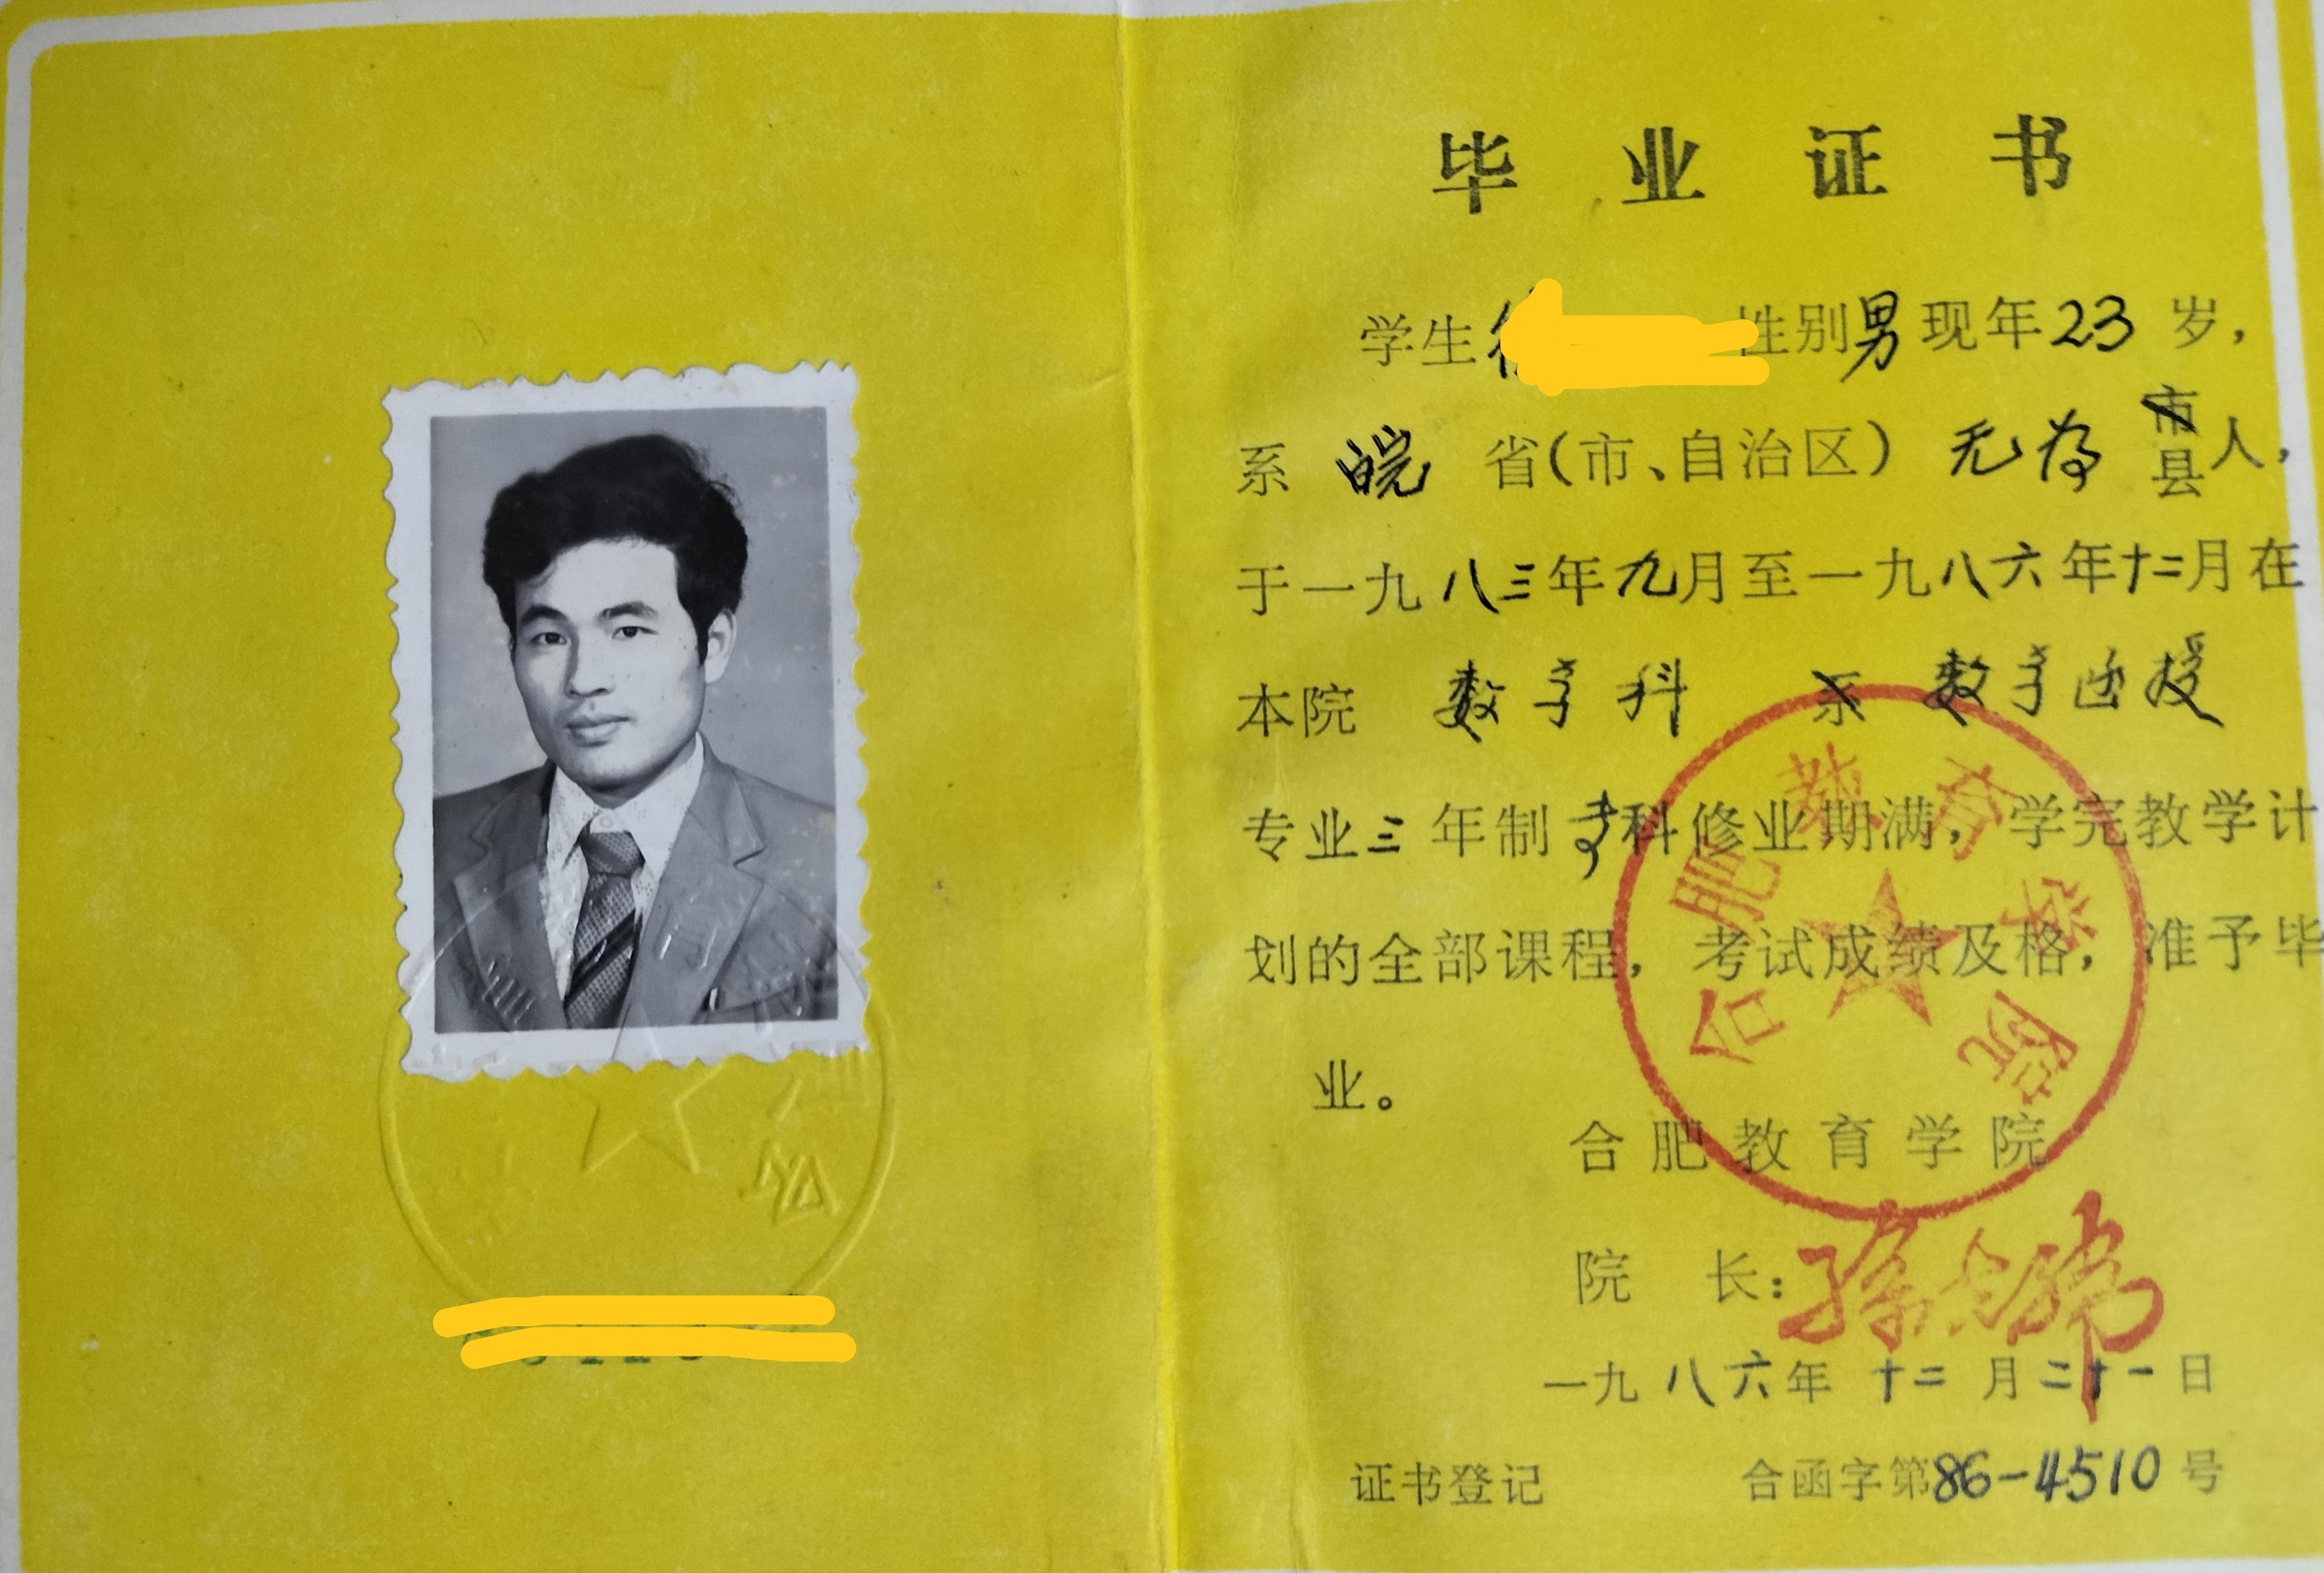 毕业证书
学生 性别男现年23岁，
系皖省（市、自治区）无为市县人，
于一九八三年九月至一九八六年十二月在
本院数学科系数学函授
专业三年制专科修业期满，学完教学计
划的全部课程，考试成绩及格，准予毕
业。
合肥教育学院
合肥教育学院
院长：
一九八六年十二月二十一日
证书登记 合函字第86-4510号